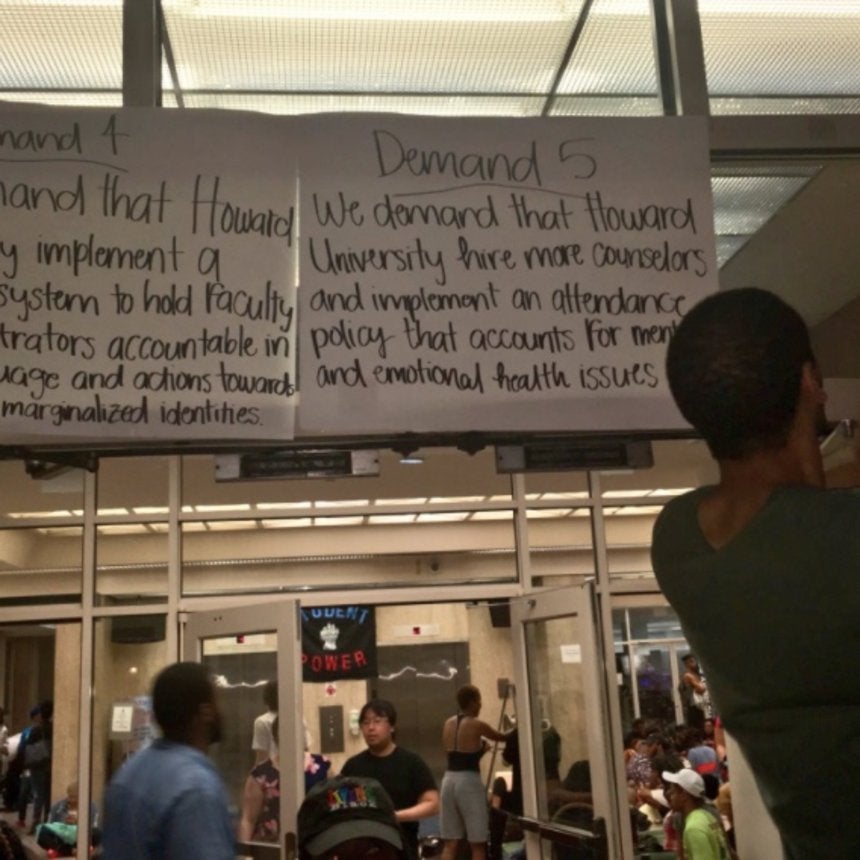 mand 4
and that Howard
y implement a
system to hold Faculty
trators accountable in
uage and actions towards
marginalized identities.
Demand 5
We demand that Howard
University hire more counselors
and implement an attendance
policy that accounts for ment
and emotional health issues
TUDENT
POWER